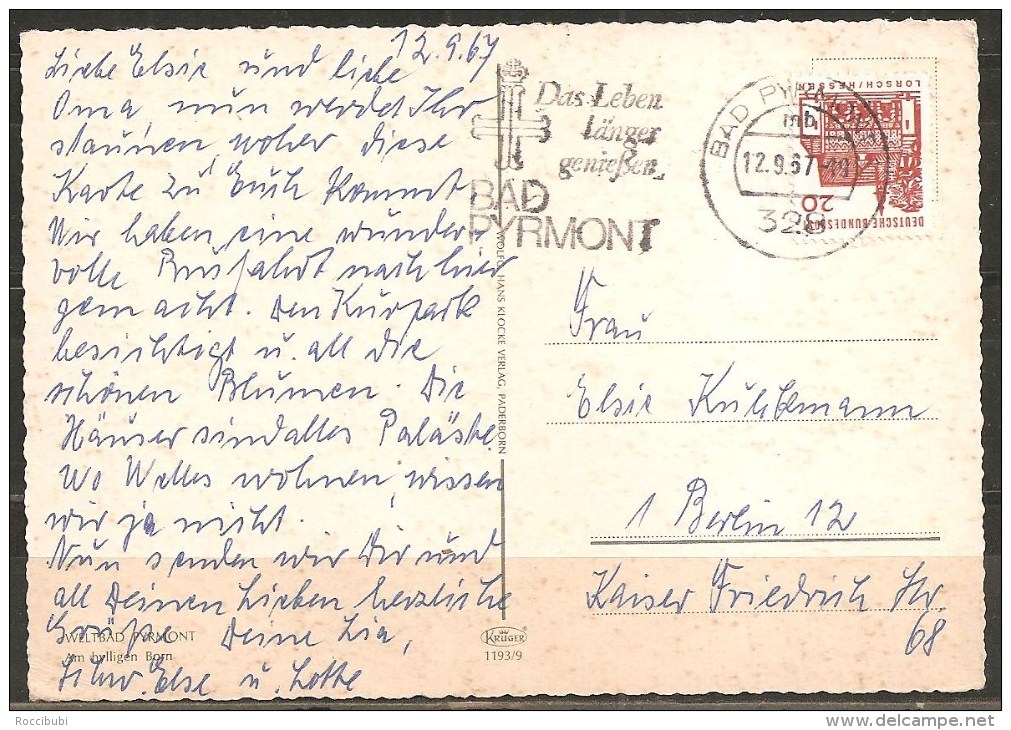 12.9.67
Liebe Elsie und liebe
Oma, nun werdet Ihr
staunen, woher diese
Karte zu Euch kommt
Wir haben eine wunder-
volle Busfahrt nach hier
gemacht. Den Kurpark
besichtigt u. all die
schönen Blumen. Die
Häuser sind alles Paläste.
Wo Welles wohnen, wissen
wir ja nicht.
Nun senden wir Dir und
all Deinen Lieben herzliche
Grüße Deine Lia,
Schw. Else u. Lotte
WELTBAD PYRMONT
Am hylligen Born
WOLFG. HANS KLOCKE VERLAG, PADERBORN
KRÜGER
1193/9
Das Leben
länger
genießen
BAD
PYRMONT
BAD PYRMONT
12.9.67
328
LORSCH/HESSEN
20
DEUTSCHE BUNDESPOST
Frau
Elsie Kuhlemann
1 Berlin 12
Kaiser Friedrich Str.
68
Roccibubi
www.delcampe.net